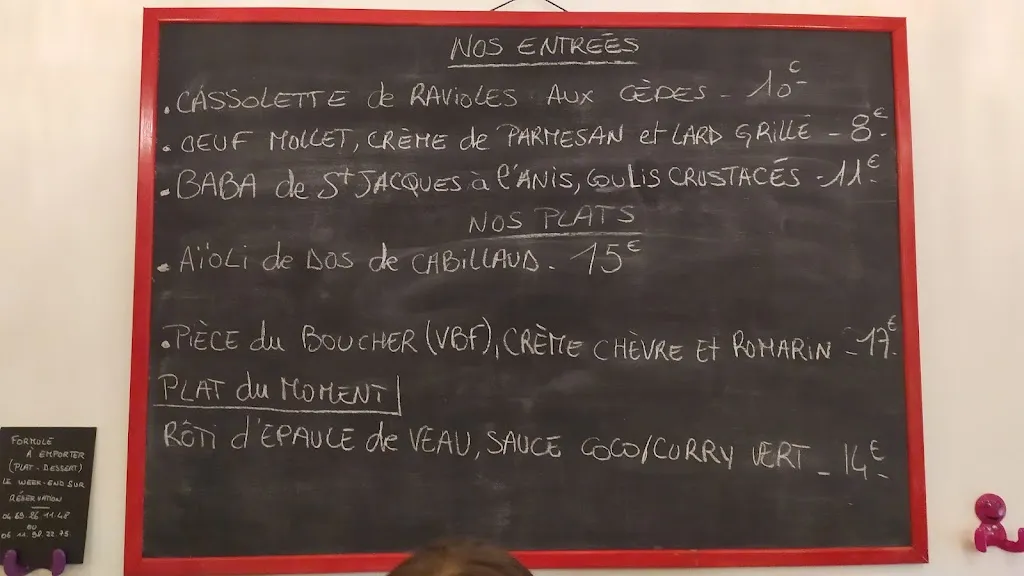 NOS ENTREÉS
. CASSOLETTE de RAVIOLES AUX CÈPES - 10€
. OEUF MOLLET, CRÈME de PARMESAN et LARD GRILLÉ - 8€
. BABA de St JACQUES à l'ANIS, COULIS CRUSTACÉS - 11€
NOS PLATS
. AÏOLI de DOS de CABILLAUD - 15€
. PIÈCE du BOUCHER (VBF), CRÈME CHÈVRE ET ROMARIN - 17€
PLAT du MOMENT
RÔTI d'ÉPAULE de VEAU, SAUCE COCO/CURRY VERT - 14€
FORMULE
À EMPORTER
(PLAT - DESSERT)
LE WEEK-END SUR
RÉSERVATION
OU